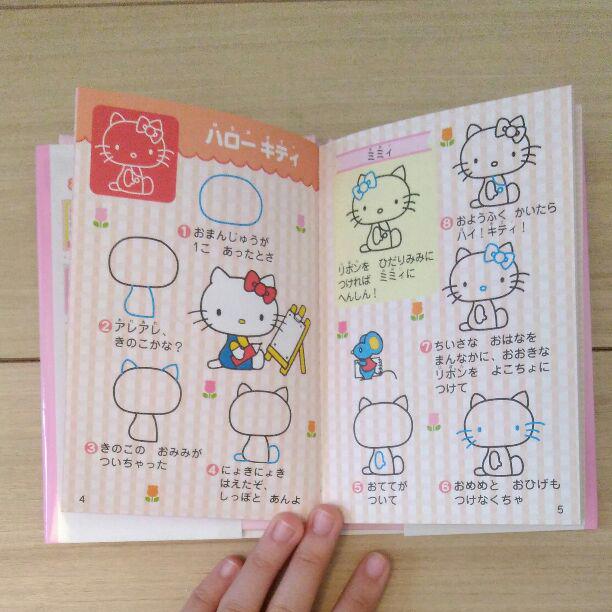 ハローキティ
1 おまんじゅうが
1こ あったとさ
2 アレアレ、
きのこかな?
3 きのこの おみみが
ついちゃった
4 にょきにょき
はえたぞ、
しっぽと あんよ
4
5 おててが
ついて
6 おめめと おひげも
つけなくちゃ
7 ちいさな おはなを
まんなかに、おおきな
リボンを よこちょに
つけて
8 おようふく かいたら
ハイ!キティ!
ミミィ
リボンを ひだりみみに
つければ ミミィに
へんしん!
5